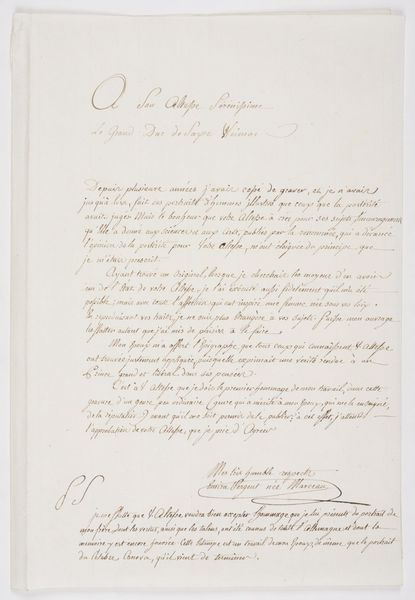 A Son Altesse Serenissime
Le Grand Duc de Saxe Weimar
Depuis plusieurs années j'avais cessé de graver, et je n'avais
jusqu'à lors, fait des portraits d'hommes illustres que ceux que la postérité
avait jugés. Mais le bonheur que votre Altesse a
qu'Elle a donné aux sciences et aux arts, publiés par la renommée, qui a devancé
l'opinion de la postérité pour Votre Altesse, m'ont éloigné du principe que
je m'étais prescrit.
Ayant trouvé un original, lorsque je cherchais les moyens d'en avoir
un de l'État de votre Altesse, je l'ai exécuté aussi fidèlement qu'il m'a été
possible; mais avec toute l'affection qui est inspiré une femme née sous vos loix.
En reproduisant vos traits, je ne suis plus étrangère à vos sujets. Puisse mon ouvrage
autant que j'ai mis de plaisir à le faire.
Mon Epoux m'a offert l'Epigraphe que tous ceux qui connaissent V. Altesse
ont trouvé justement appliquée, puisqu'elle exprimait une vérité rendue à un
Prince grand et libéral dans ses pensées.
C'est à V. altesse que je dois le premier hommage de mon travail, dans cette
gravure d'un genre peu ordinaire (genre qui a mérité à mon Epoux, qui me l'a enseigné,
de la réputation.) avant qu'il ne soit permis de le publier; à cet effet j'attends
l'approbation de votre Altesse, que je prie d'agréer
Mes très humbles respects
Emira Sergent née Marceau
PS
je me flatte que V. Altesse, voudra bien accepter l'hommage que je lui présente du portrait de
mon frère, dont les vertus, ainsi que les talens, ont été connus de toute l'allemagne et dont la
mémoire y est encore honorée. Cette Estampe est un travail de mon Epoux, de même que le portrait
du Célèbre Canova, qu'il vient de terminer.